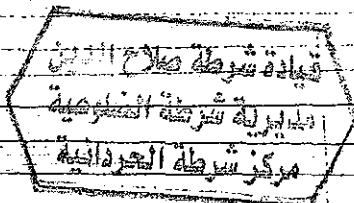 قيادة شرطة صلاح الدين
مديرية شرطة الضلوعية
مركز شرطة الحردانية